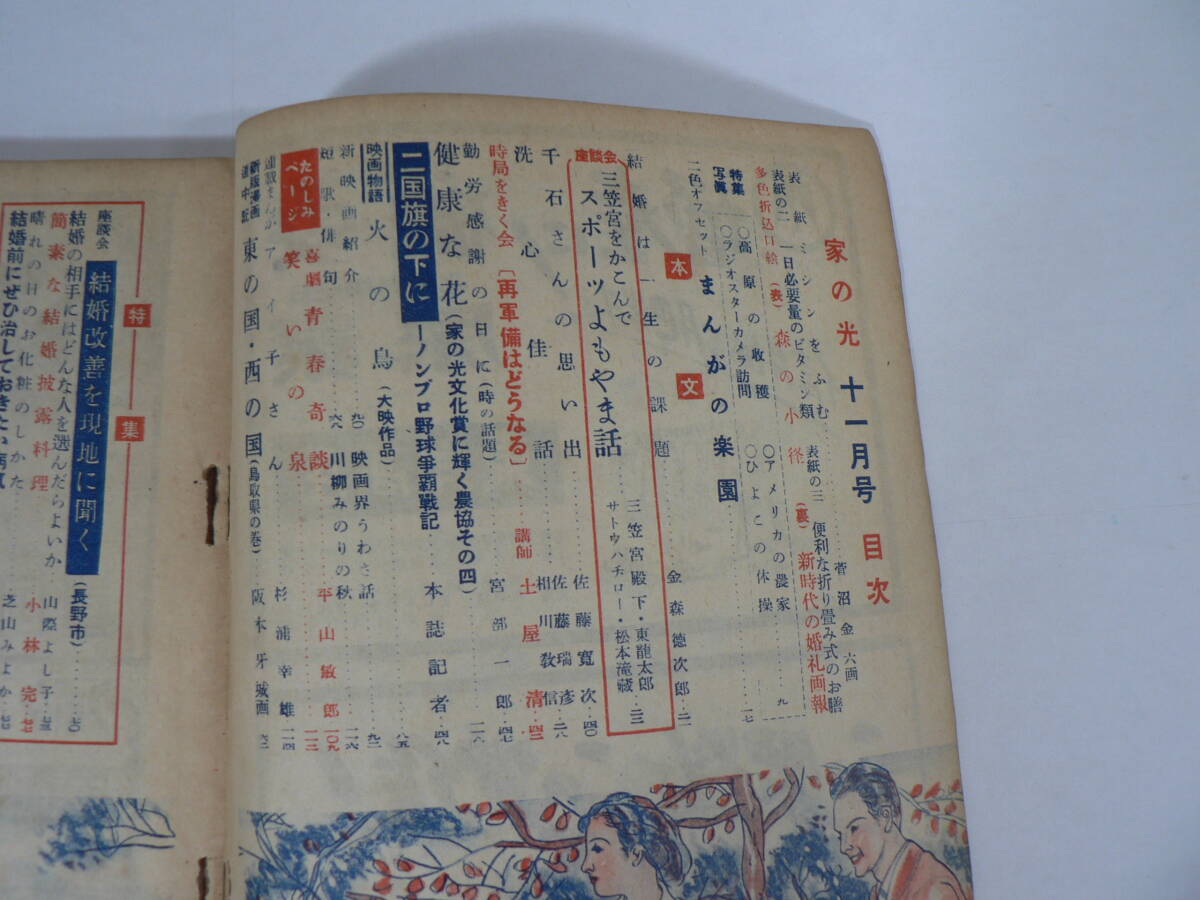 家の光 十一月号 目次
表紙 ミシンをふむ 菅沼金六画
表紙の二 一日必要量のビタミン類 表紙の三 便利な折り畳み式のお膳
多色折込口絵 (表) 森の小径 (裏) 新時代の婚礼画報
特集写真 ○高原の収穫 ○アメリカの農家 九
○ラジオスターカメラ訪問 ○ひよこの体操
二色オフセット まんがの楽園 一七
本文
結婚は一生の課題 金森徳次郎 二一
座談会 三笠宮をかこんで スポーツよもやま話 三笠宮殿下・東龍太郎 サトウハチロー・松本滝蔵 二三
千石さんの思い出 佐藤寛次 四〇
洗心佳話 佐藤瑞彦 相川敎信 二八
時局をきく会〔再軍備はどうなる〕 講師 土屋清
勤労感謝の日に(時の話題) 宮部一郎 四七
健康な花(家の光文化賞に輝く農協その四) 一一八
二国旗の下に ―ノンプロ野球争覇戦記 本誌記者 四八
映画物語 火の鳥(大映作品) 八五
新映画紹介 九〇 映画界うわさ話 九二
短歌・俳句 六八 川柳みのりの秋 一一六
たのしみページ 喜劇青春奇談 平山敏郎 一〇九
笑いの泉 一一二
アイ子さん 杉浦幸雄 一一四
新版漫画道中記 東の国・西の国(鳥取県の巻) 阪本牙城画 六二
特集
座談会 結婚改善を現地に聞く (長野市) 七〇
結婚の相手にはどんな人を選んだらよいか 山際よし子
簡素な結婚披露料理 小林完
晴れの日のお化粧のしかた 芝山みよか
結婚前にぜひ治しておきたい病気